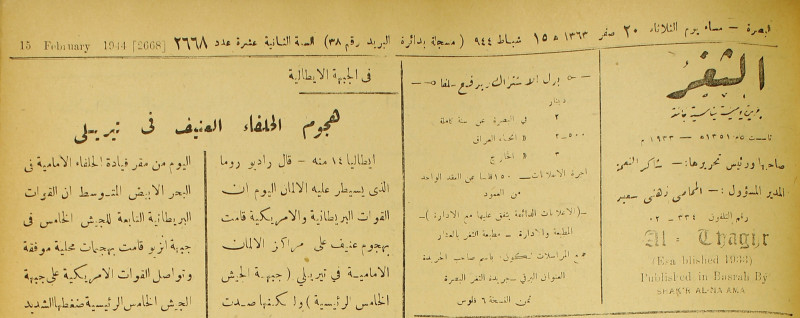 البصرة — مساء يوم الثلاثاء ٢٠ صفر ١٣٦٣ ه ١٥ شباط ٩٤٤ ( مسجلة بدائرة البريد رقم ٣٨) السنة الثانية عشرة عدد ٢٦٦٨ [2668] 15 February 1944
الثغر
جريدة يومية سياسية جامعة
تأسست ١٣٥١ — ١٩٣٣ م
صاحبها ورئيس تحريرها: — شاكر النعمة
المدير المسؤول: — المحامي ذهني سعيد
رقم التلفون ٣٣٤ — ٠٢
Al - Thaghr
(Established 1933)
Published in Basrah By
SHAKIR AL-NAAMA
بدل الاشتراك يدفع سلفا
دينار
٢ في البصرة عن سنة كاملة
٢-٥٠٠ انحاء العراق
٣ الخارج
اجرة الاعلانات ١٥٠ فلسا عن العقد الواحد
من العمود
—( الاعلانات الدائمة يتفق عليها مع الادارة )—
المطبعة والادارة — مطبعة الثغر بالعشار
جميع المراسلات تكون باسم صاحب الجريدة
العنوان البرقي — جريدة الثغر البصرة
ثمن النسخة ٦ فلوس
في الجبهة الايطالية
هجوم الحلفاء العنيف في تيريلي
ايطاليا ١٤ منه — قال راديو روما
الذي يسيطر عليه الالمان اليوم ان
القوات البريطانية والامريكية قامت
بهجوم عنيف على مراكز الالمان
الامامية في تيريلي ( جبهة الجيش
الخامس الرئيسية ) ولكنها صدت
اليوم من مقر قيادة الحلفاء الامامية في
البحر الابيض المتوسط ان القوات
البريطانية التابعة للجيش الخامس في
جبهة أنزيو قامت بهجمات محلية موفقة
وتواصل القوات الامريكية على جبهة
الجيش الخامس الرئيسية ضغطها الشديد